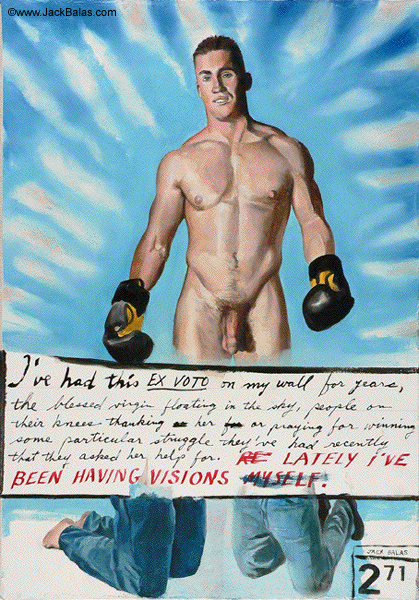 ©www.JackBalas.com
I've had this EX VOTO on my wall for years,
the blessed virgin floating in the sky, people on
their knees thanking her or praying for winning
some particular struggle they've had recently
that they asked her help for. RE LATELY I'VE
BEEN HAVING VISIONS MYSELF.
JACK BALAS
271